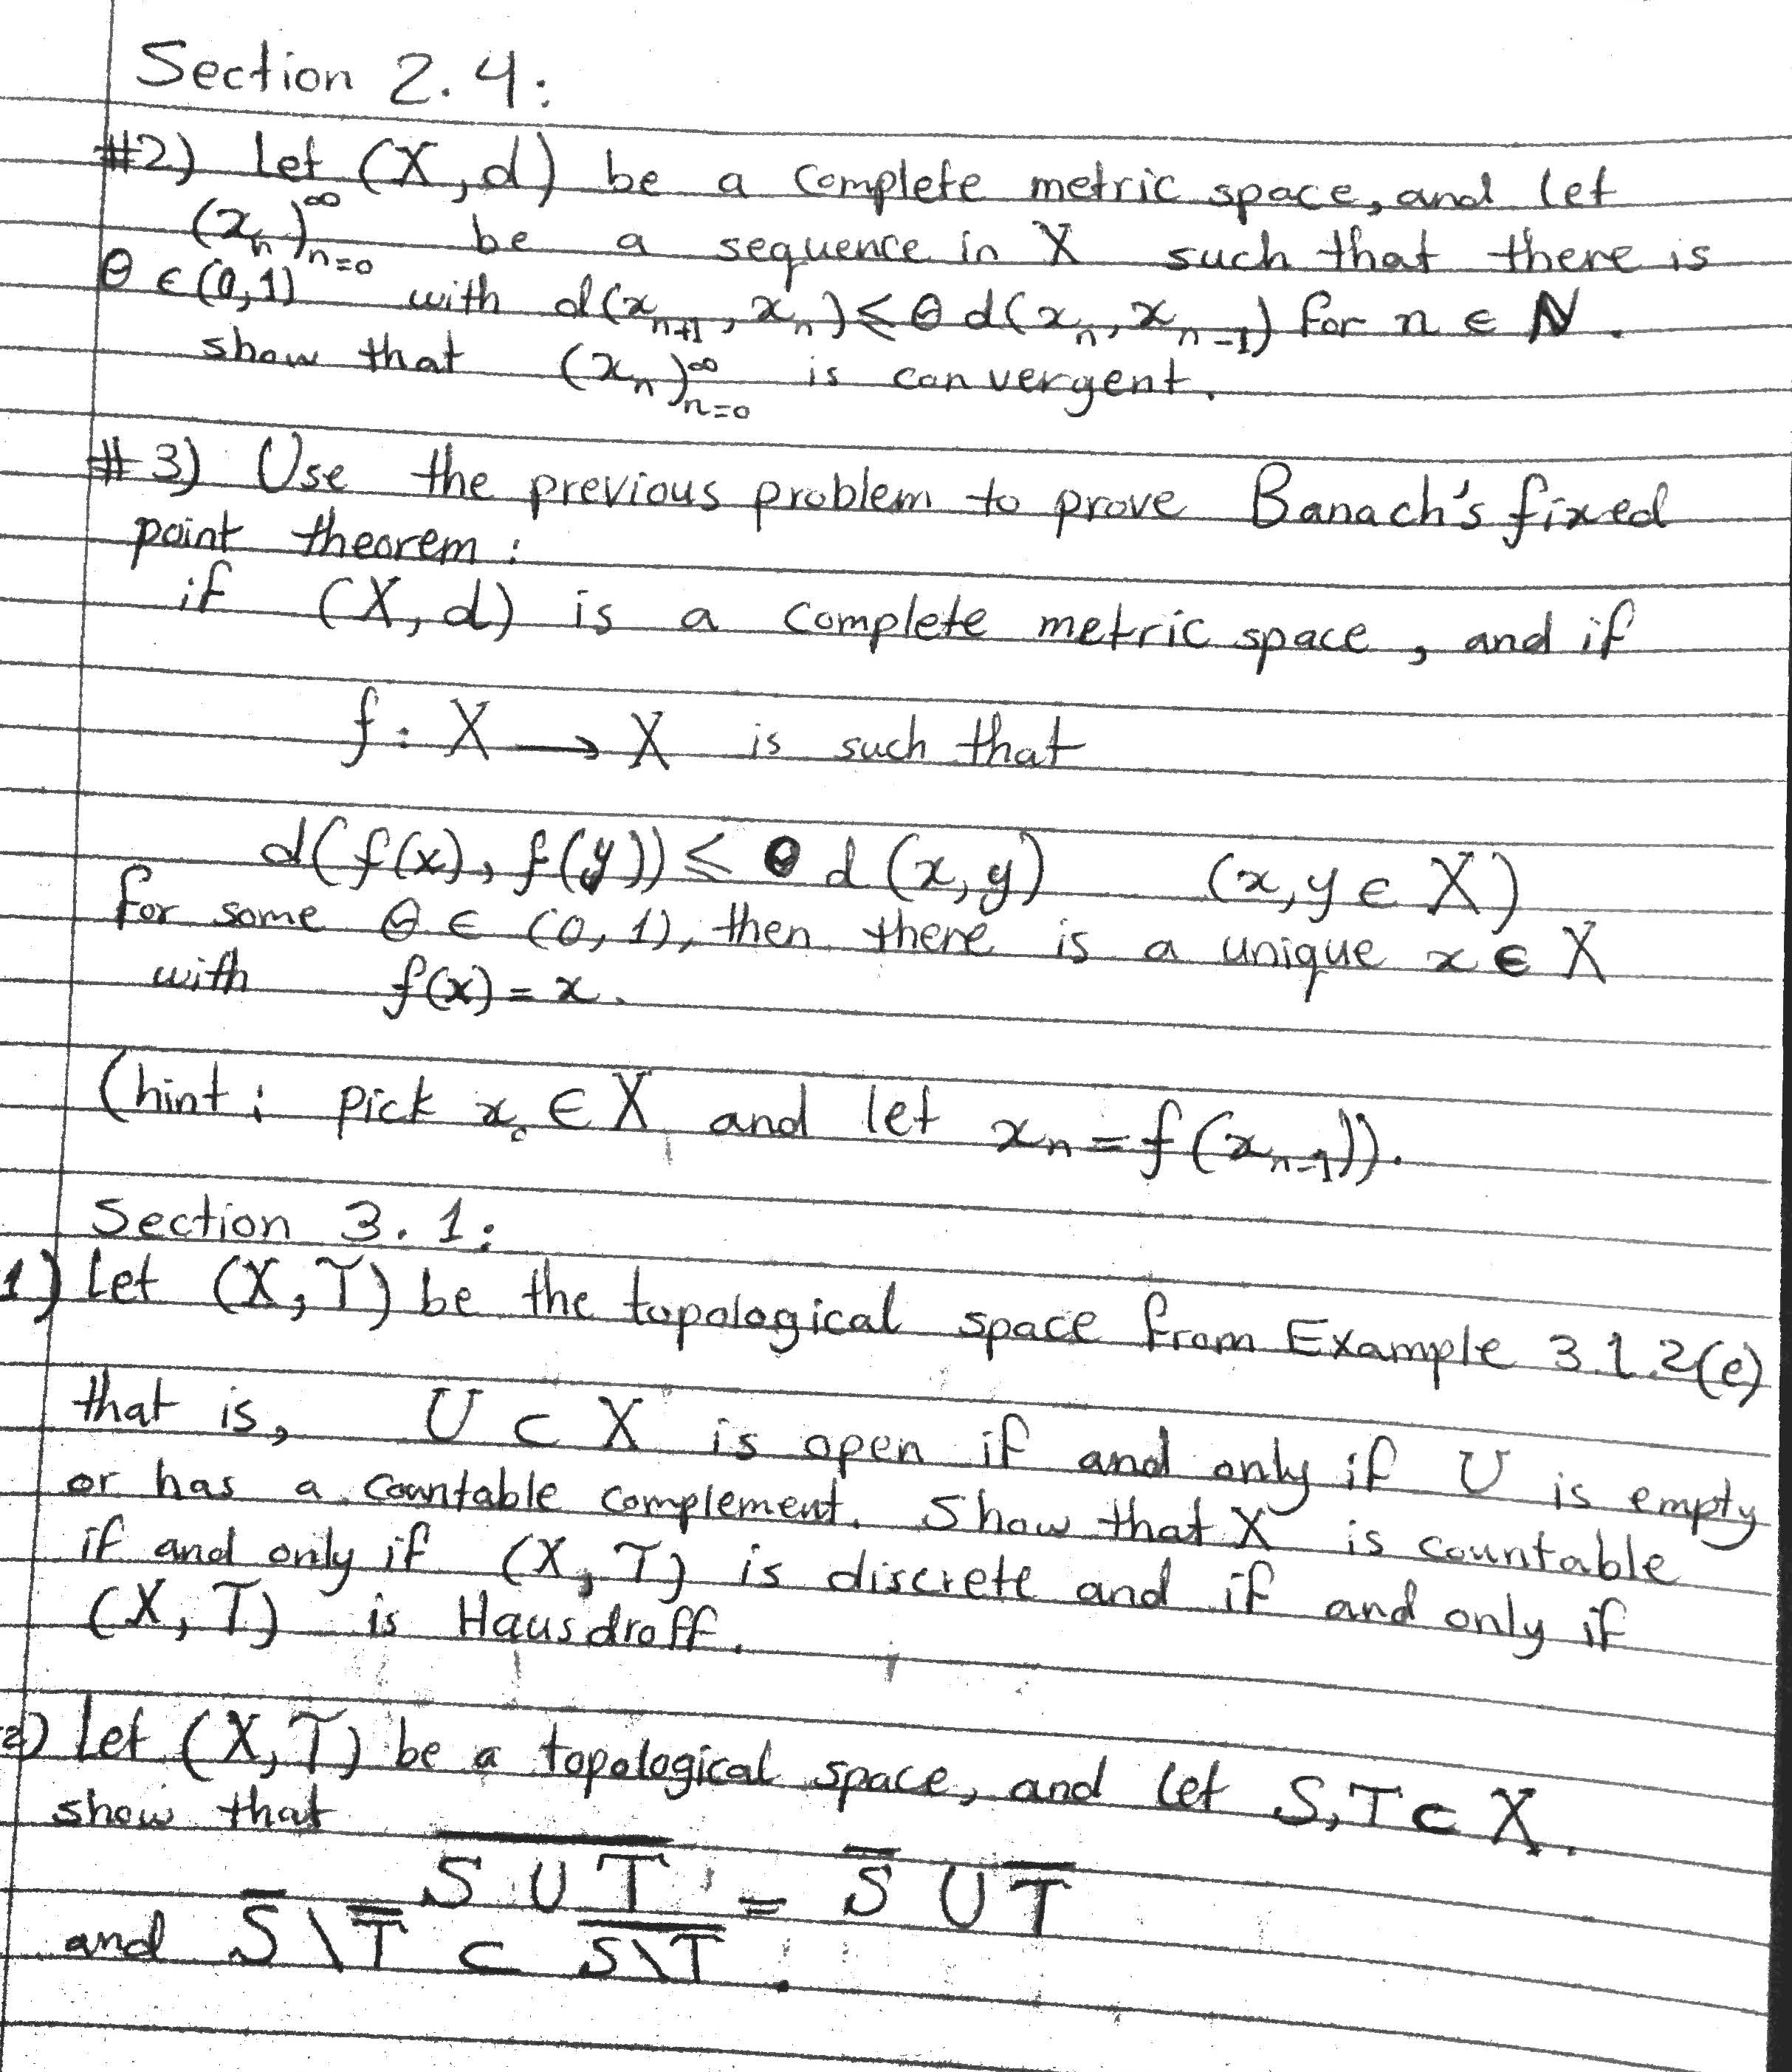 Section 2.4:
#2) Let (X,d) be a complete metric space, and let
(xₙ)ₙ₌₀^∞ be a sequence in X such that there is
θ ∈ (0,1) with d(xₙ₊₁, xₙ) ≤ θ d(xₙ, xₙ₋₁) for n ∈ N.
show that (xₙ)ₙ₌₀^∞ is convergent.
#3) Use the previous problem to prove Banach's fixed
point theorem:
if (X,d) is a complete metric space, and if
f: X → X is such that
d(f(x), f(y)) ≤ θ d(x,y) (x,y ∈ X)
for some θ ∈ (0,1), then there is a unique x ∈ X
with f(x) = x.
(hint: pick x₀ ∈ X and let xₙ = f(xₙ₋₁)).
Section 3.1:
1) Let (X,T) be the topological space from Example 3.1.2(e)
that is, U ⊂ X is open if and only if U is empty
or has a countable complement. Show that X is countable
if and only if (X,T) is discrete and if and only if
(X,T) is Hausdroff.
2) Let (X,T) be a topological space, and let S,T ⊂ X.
show that
S̅ ̅∪̅ ̅T̅ = S̅ ∪ T̅
and S̅ \ T̅ ⊂ S̅\̅T̅.